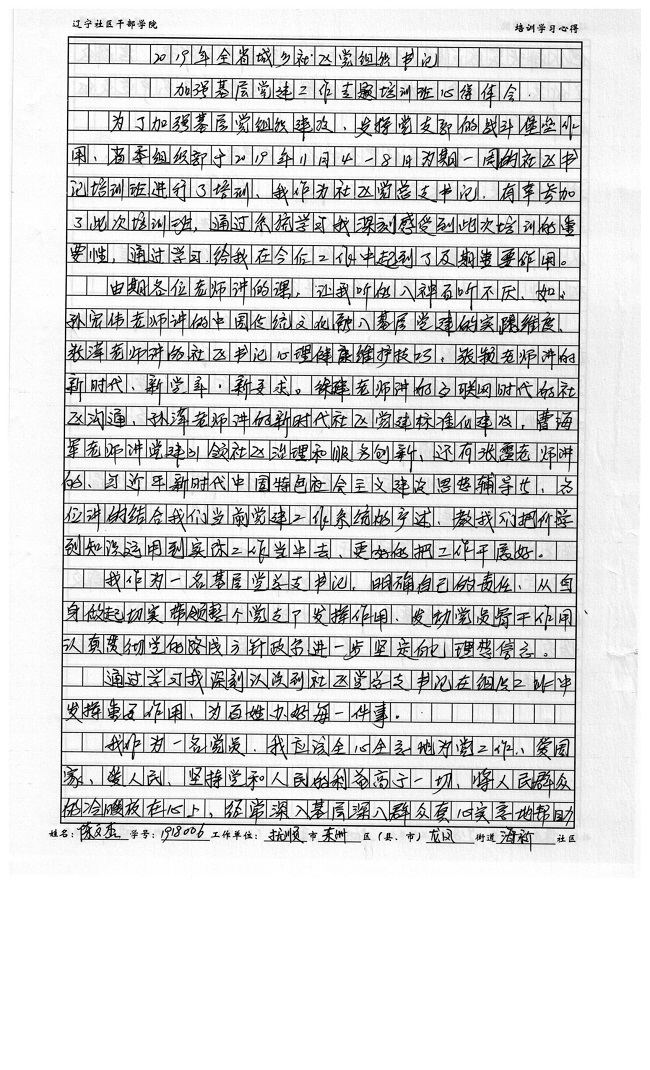 辽宁社区干部学院 培训学习心得
2019年全省城乡社区党组织书记
加强基层党建工作专题培训班心得体会.
为了加强基层党组织建设、发挥党支部的战斗堡垒作
用、省委组织部于2019年11月4-8日为期一周的社区书
记培训班进行了培训、我作为社区党总支书记.有幸参加
了此次培训班.通过系统学习我深刻感受到此次培训的重
要性,通过学习.给我在今后工作中起到了及期重要作用。
由期各位老师讲的课,让我听的入神百听不厌.如:
孙宏伟老师讲的中国传统文化融入基层党建的实践维度、
张泽老师讲的社区书记心理健康维护技巧、张颖老师讲的
新时代、新党章·新要求。徐暐老师讲的互联网时代的社
区沟通、孙泽老师讲的新时代社区党建标准化建设,曹海
军老师讲党建引领社区治理和服务创新、还有张雪老师讲
的、习近平新时代中国特色社会主义建设思想辅导*、各
位讲的结合我们当前党建工作系统的产述.教我们把所学
到知识运用到实际工作当中去、更好的把工作开展好。
我作为一名基层党总支书记,明确自己的责任、从自
身做起切实带领整个党支下发挥作用、发切党员骨干作用
认真贯彻党的路线方针政策进一步坚定自己理想信念。
通过学习我深刻认识到社区党总支书记在组织工作中
发挥重要作用、为百姓办好每一件事。
我作为一名党员.我应该全心全意地为党工作、爱国
家、爱人民、坚持党和人民的利益高于一切、将人民群众
的冷暖放在心上,经常深入基层深入群众真心实意地帮助
姓名: 学号: 1918006 工作单位: 抚顺 市 东洲 区(县、市) 龙凤 街道 海新 社区